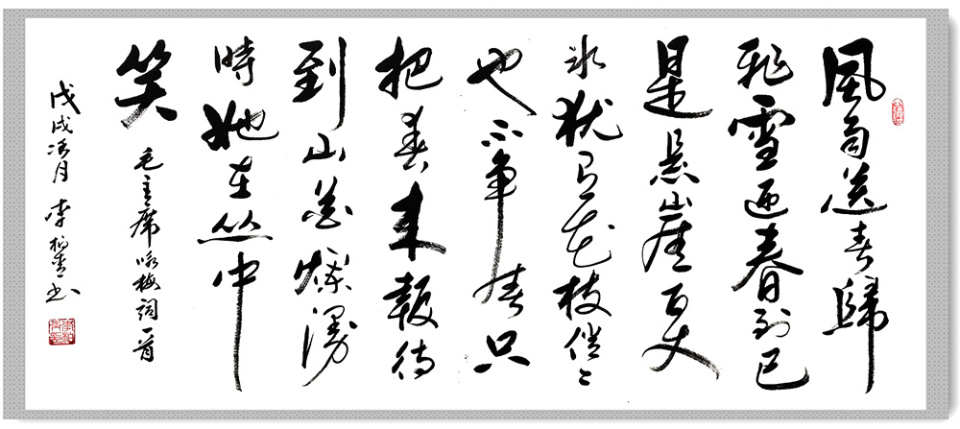 風雨送春歸
飛雪迎春到已
是悬崖百丈
冰犹有花枝俏々
也不争春只
把春来報待
到山花爛漫
時她在丛中
笑
毛主席咏梅詞一首
戊戌月李书